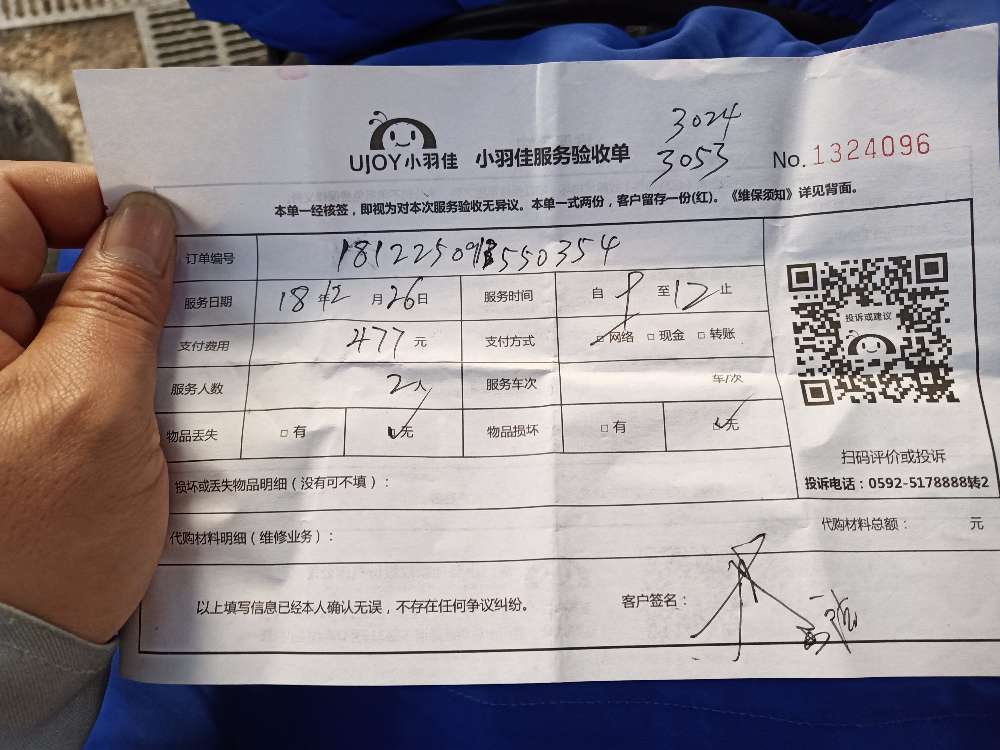 3024
UJOY小羽佳 小羽佳服务验收单 3053 No.1324096
本单一经核签，即视为对本次服务验收无异议。本单一式两份，客户留存一份(红)。《维保须知》详见背面。
订单编号
服务日期 18年12月26日 服务时间 自 至12止
支付费用 477元 支付方式 □网络 □现金 □转账
服务人数 2人 服务车次 车/次
物品丢失 □有 □无 物品损坏 □有 □无
投诉或建议
扫码评价或投诉
投诉电话：0592-5178888转2
损坏或丢失物品明细（没有可不填）：
代购材料明细（维修业务）： 代购材料总额： 元
以上填写信息已经本人确认无误，不存在任何争议纠纷。 客户签名：